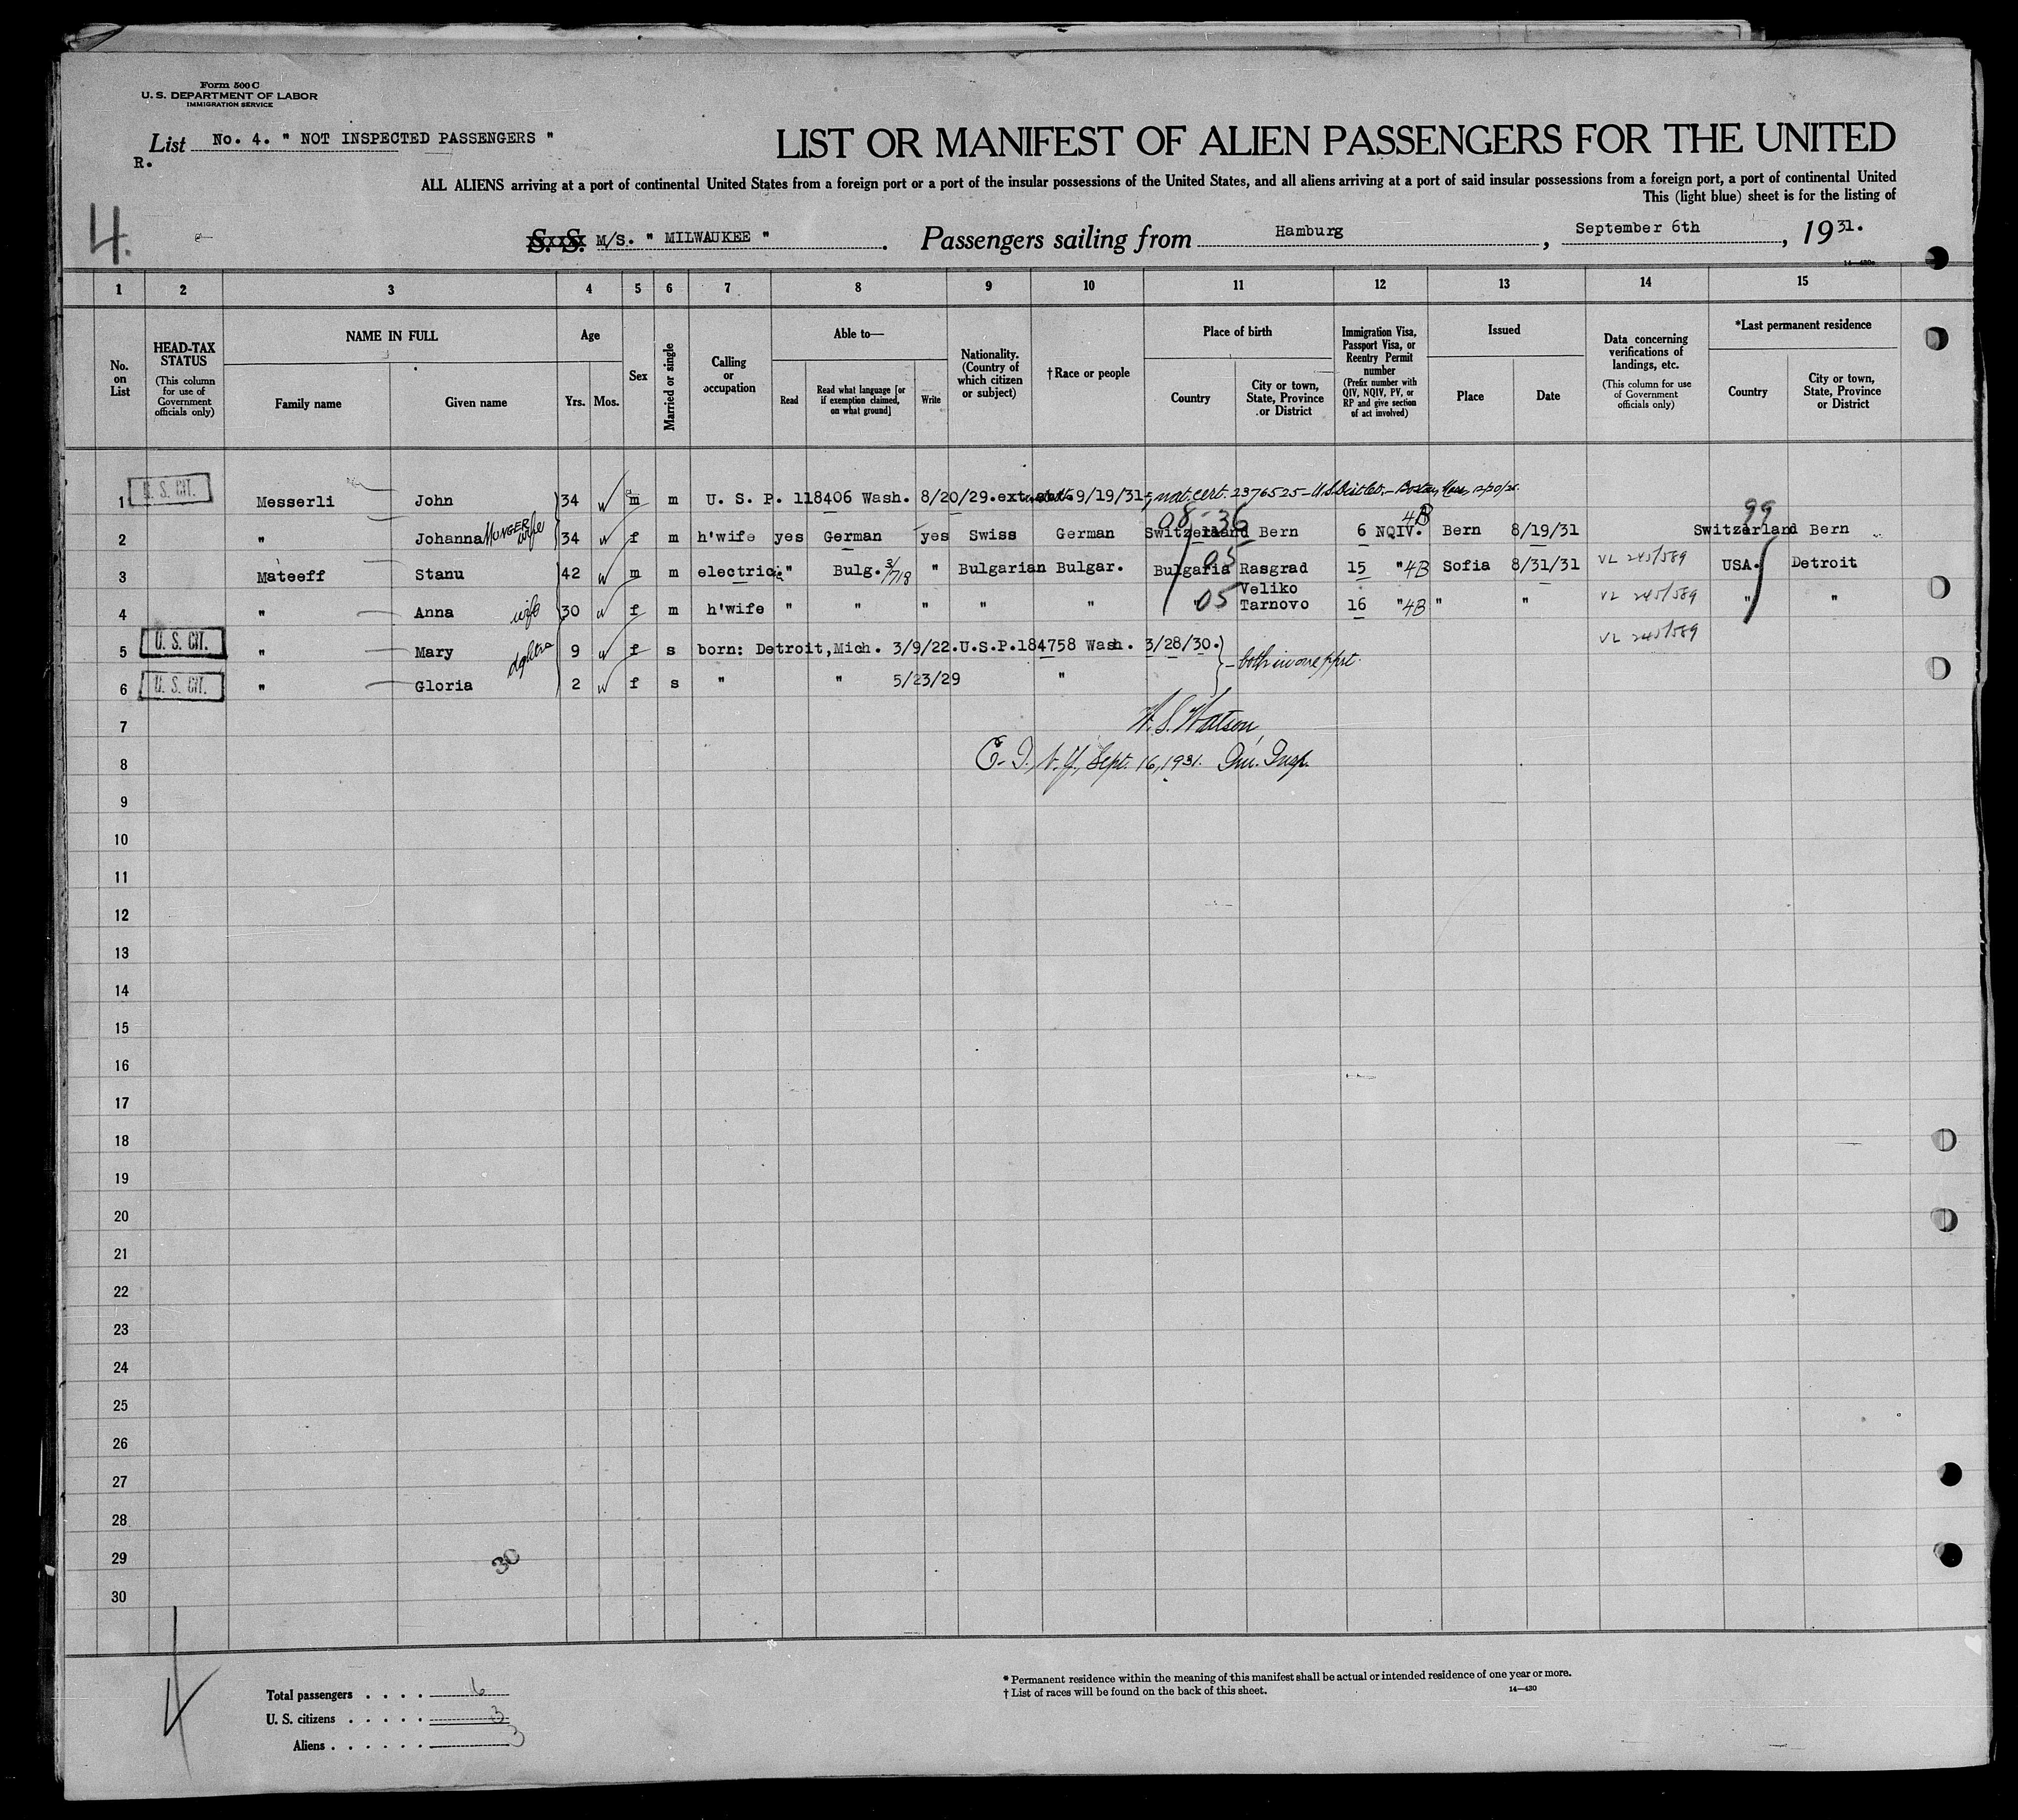 Form 500 C
U. S. DEPARTMENT OF LABOR
IMMIGRATION SERVICE
List No. 4. " NOT INSPECTED PASSENGERS "
R.
LIST OR MANIFEST OF ALIEN PASSENGERS FOR THE UNITED
ALL ALIENS arriving at a port of continental United States from a foreign port or a port of the insular possessions of the United States, and all aliens arriving at a port of said insular possessions from a foreign port, a port of continental United
This (light blue) sheet is for the listing of
4.
S. S. M/S. " MILWAUKEE " . Passengers sailing from Hamburg , September 6th , 19 31.
14—430c
1 2 3 4 5 6 7 8 9 10 11 12 13 14 15
No. on List
HEAD-TAX STATUS
(This column for use of Government officials only)
NAME IN FULL
Family name
Given name
Age
Yrs. Mos.
Sex
Married or single
Calling or occupation
Able to—
Read
Read what language [or if exemption claimed, on what ground]
Write
Nationality. (Country of which citizen or subject)
†Race or people
Place of birth
Country
City or town, State, Province or District
Immigration Visa, Passport Visa, or Reentry Permit number
(Prefix number with QIV, NQIV, PV, or RP and give section of act involved)
Issued
Place
Date
Data concerning verifications of landings, etc.
(This column for use of Government officials only)
*Last permanent residence
Country
City or town, State, Province or District
1 U. S. CIT. Messerli John 34 m m U. S. P. 118406 Wash. 8/20/29. ext. 9/19/31; nat. cert. 2376525 - U.S. Dist. Ct. - Boston, Mass.
08-36 4B 99
2 " Johanna MUNGER wife 34 f m h'wife yes German yes Swiss German Switzerland Bern 6 NQIV. Bern 8/19/31 Switzerland Bern
3 Mateeff Stanu 42 m m electric. " Bulg. 3/718 " Bulgarian Bulgar. 05 Bulgaria Rasgrad 15 " 4B Sofia 8/31/31 VL 245/589 USA. Detroit
4 " Anna wife 30 f m h'wife " " " " " 05 " Veliko Tarnovo 16 " 4B " " VL 245/589 " "
5 U. S. CIT. " Mary 9 f s born: Detroit, Mich. 3/9/22. U.S.P. 184758 Wash. 3/28/30. VL 245/589
- both in one pprt.
6 U. S. CIT. " Gloria 2 f s " " 5/23/29 "
7 W. S. Watson,
8 E. I., N. Y., Sept. 16, 1931. Imm. Insp.
9
10
11
12
13
14
15
16
17
18
19
20
21
22
23
24
25
26
27
28
29
30
30
Total passengers . . . . 6
U. S. citizens . . . . . 3
Aliens . . . . . . 3
* Permanent residence within the meaning of this manifest shall be actual or intended residence of one year or more.
† List of races will be found on the back of this sheet.
14—430